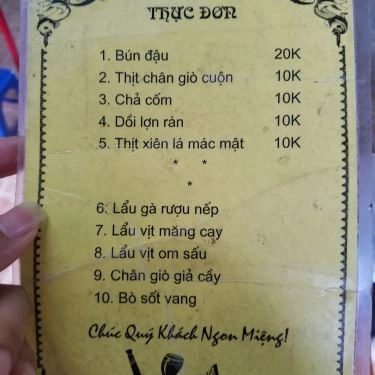 THỰC ĐƠN
1. Bún đậu 20K
2. Thịt chân giò cuộn 10K
3. Chả cốm 10K
4. Dồi lợn rán 10K
5. Thịt xiên lá mác mật 10K
* *
*
6. Lẩu gà rượu nếp
7. Lẩu vịt măng cay
8. Lẩu vịt om sấu
9. Chân giò giả cầy
10. Bò sốt vang
Chúc Quý Khách Ngon Miệng!